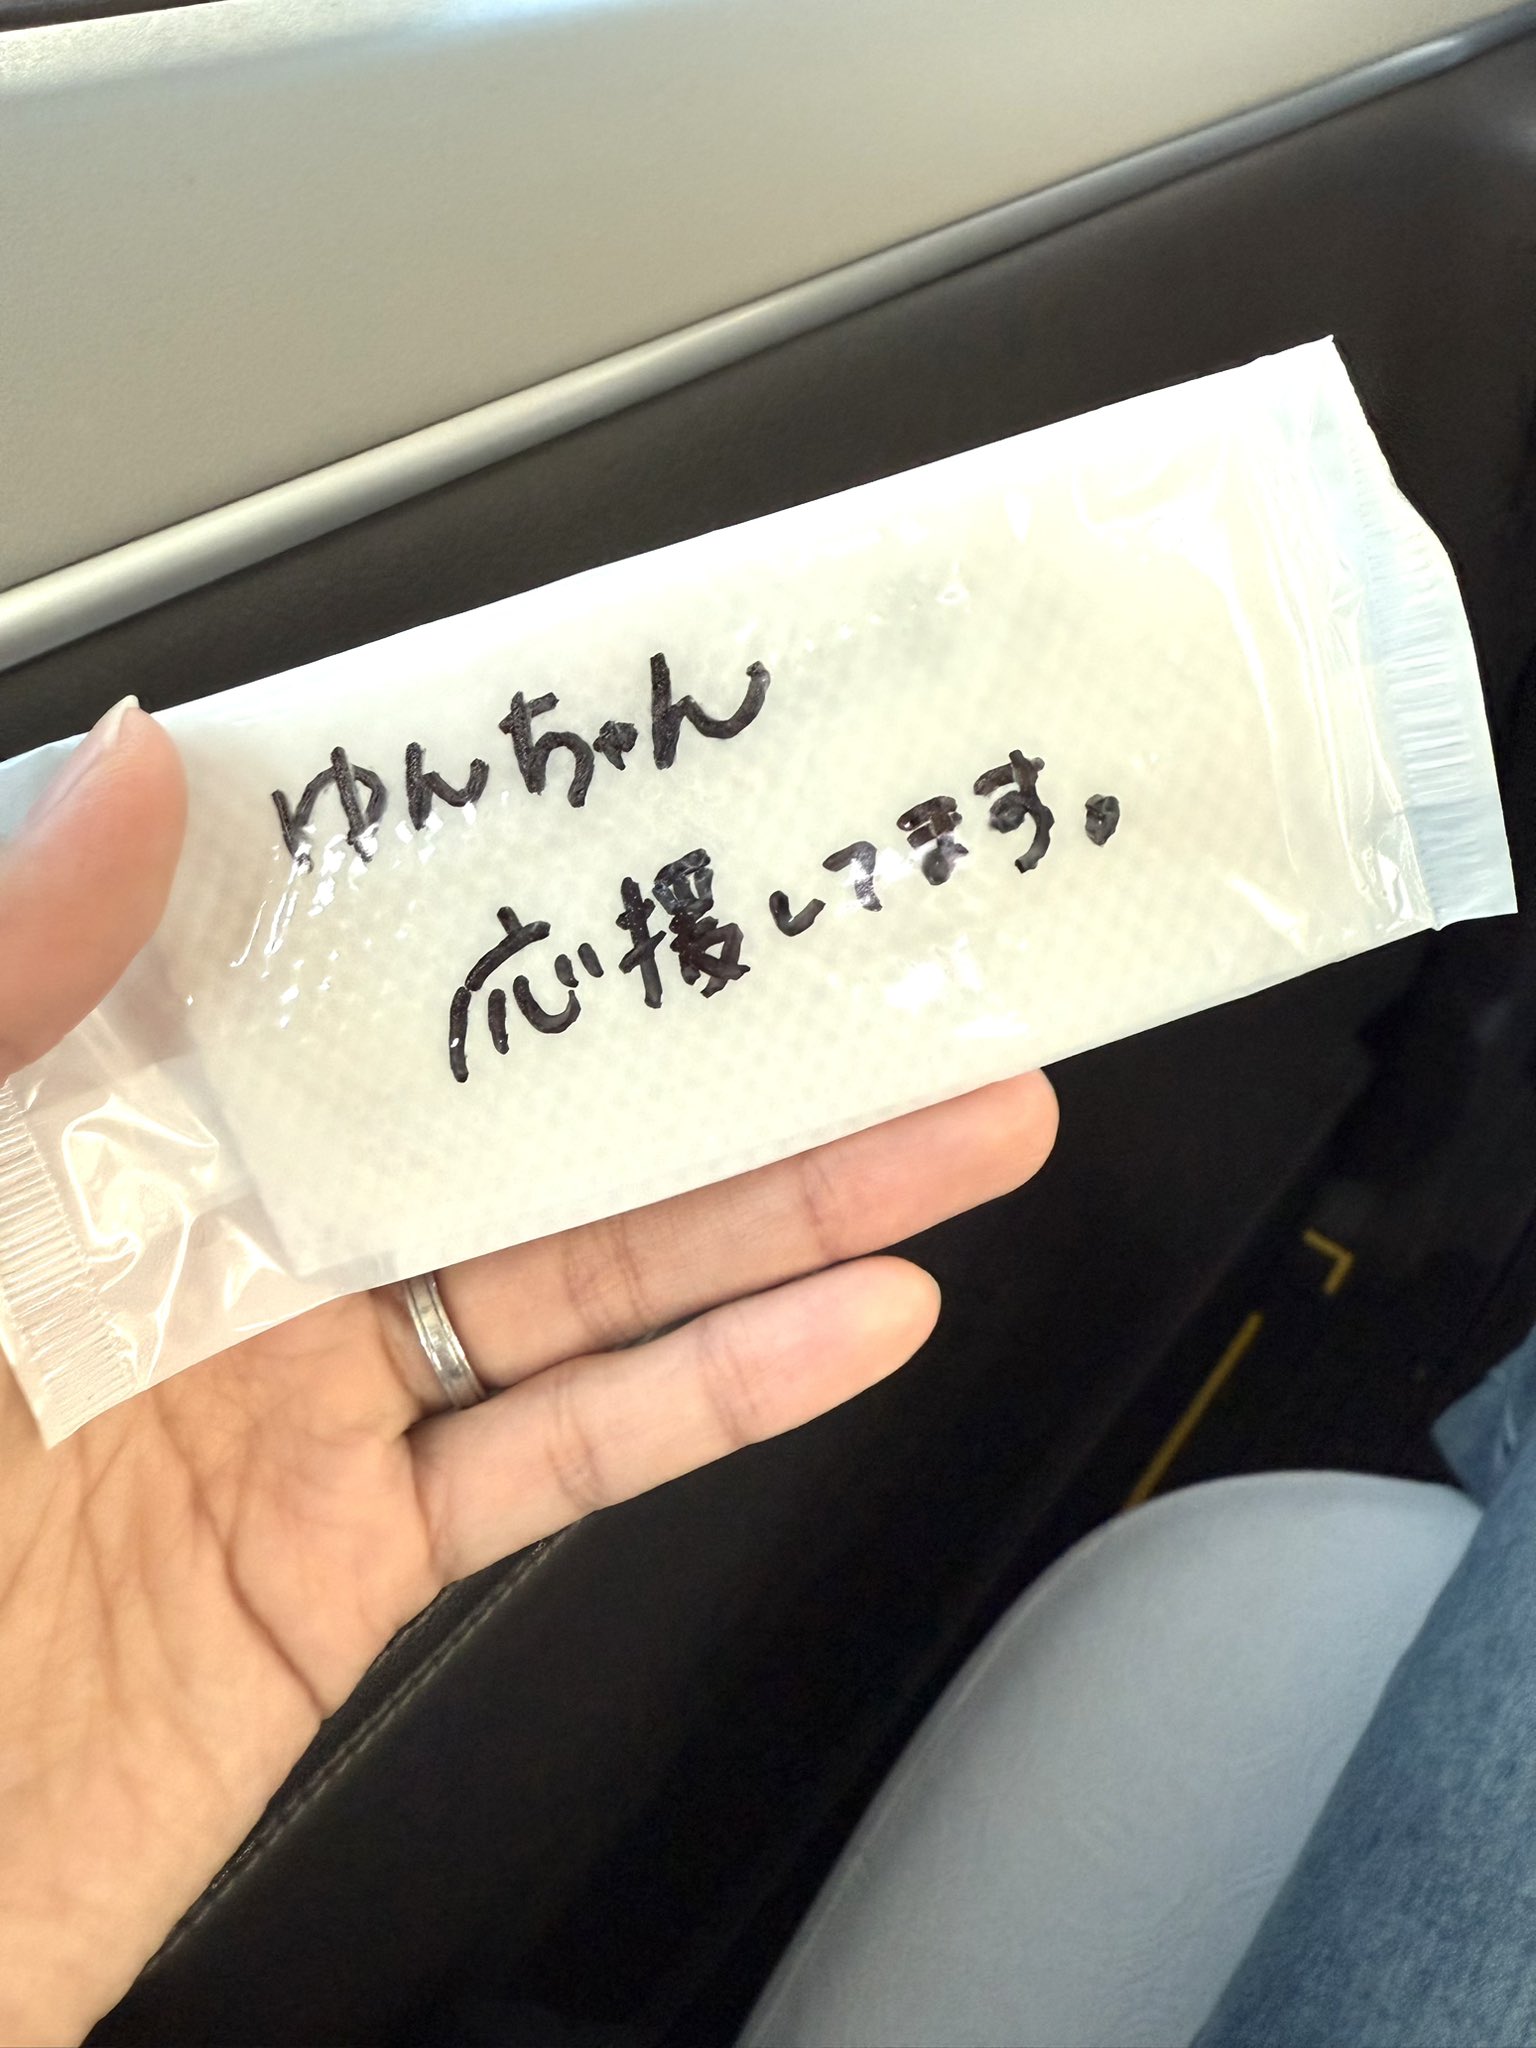 ゆんちゃん
応援してます。